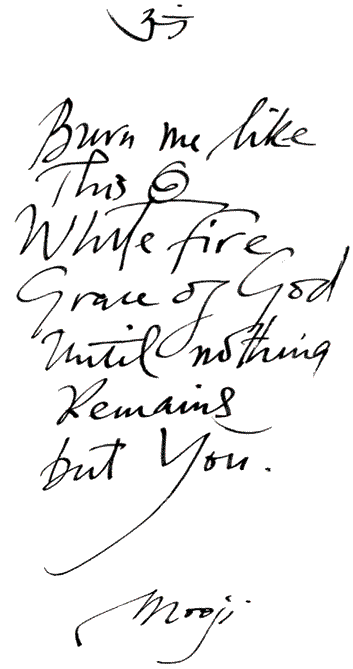 Burn me like
This
White fire
Grace of God
Until nothing
Remains
but You.
Mooji